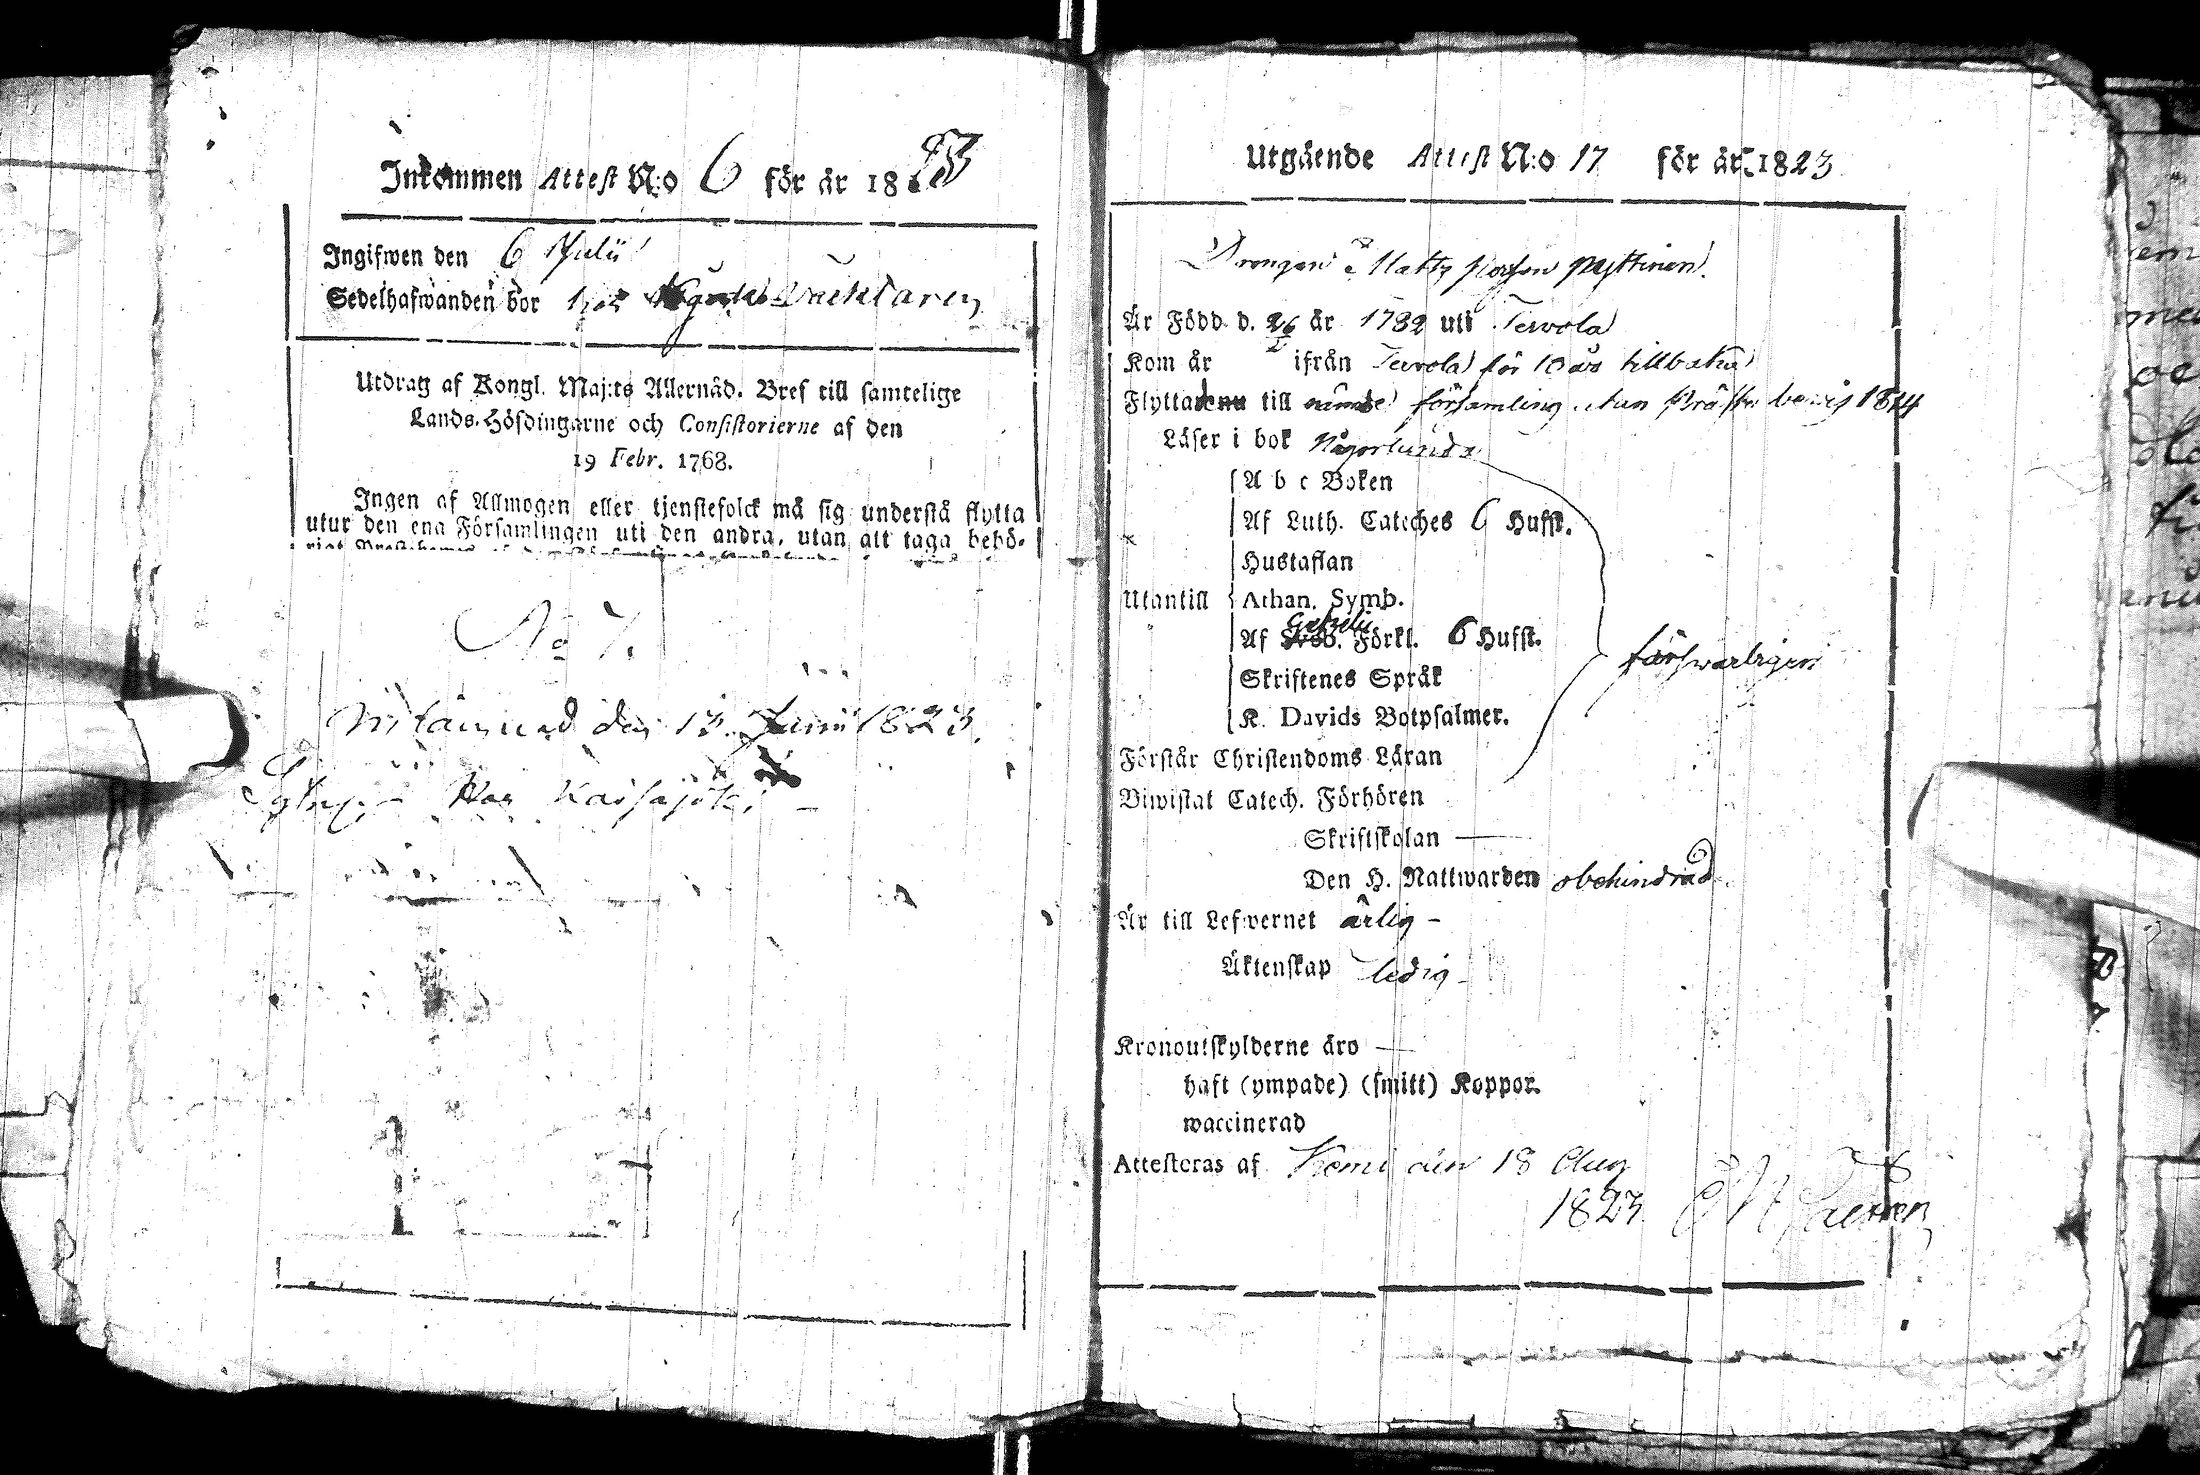 Inkommen Attest N:o 6 för år 1823
Ingifwen den 6 Julii
Sedelhafwanden bor hos
Utdrag af Kongl. Maj:ts Allernåd. Bref till samtelige
Lands-Höfdingarne och Consistorierne af den
19 Febr. 1768.
Ingen af Allmogen eller tjenstefolck må sig understå flytta
utur den ena Församlingen uti den andra, utan att taga behö-
No 7.
den 13 Junii 1823.
Utgående Attest N:o 17 för år 1823
Drengen Matts Pyttinen.
Är Född d. 26/2 år 1782 uti Tervola
Kom år ifrån Tervola för 10 års tillbaka
Flyttade till församling utan Präste bevis 1814
Läser i bok Någorlunda
A b c Boken
Af Luth. Catechès 6 Hufst.
Hustaflan
Utantill Athan. Symb.
Af Gezelii Förkl. 6 Hufst.
Skriftenes Språk
försvarligen
K. Davids Botpsalmer.
Förstår Christendoms Läran
Biwistat Catech. Förhören
Skriftskolan —
Den H. Nattwarden obehindrad
Är till Lefwernet ärlig -
Äktenskap ledig -
Kronoutskylderne äro —
haft (ympade) (smitt) Koppor.
waccinerad
Attesteras af Kemi den 18 Aug
1823